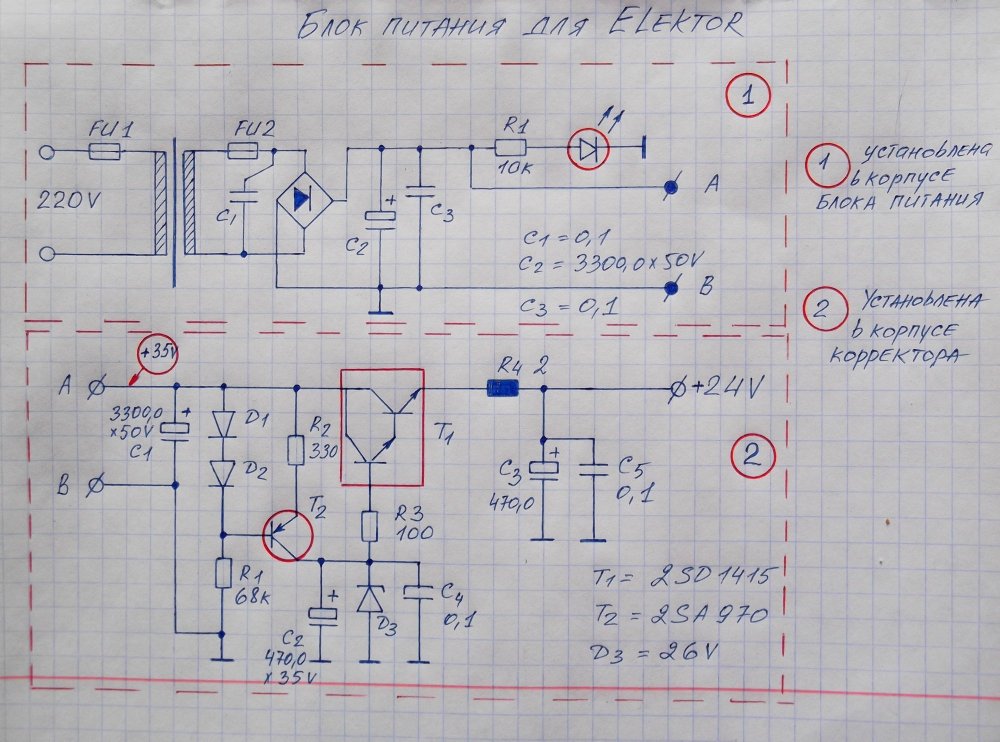 Блок питания для ELEKTOR
1
FU1
FU2
R1
10к
220V
C1
C2
+
C3
A
B
C1 = 0,1
C2 = 3300,0 x 50V
C3 = 0,1
1 установлена
в корпусе
блока питания
2 Установлена
в корпусе
корректора
+35V
A
3300,0
x 50V
+
C1
B
D1
D2
R2
330
T1
R4 2
+24V
2
T2
R3
100
C3
+
470,0
C5
0,1
R1
68к
C2
+
470,0
x 35V
D3
C4
0,1
T1 = 2SD1415
T2 = 2SA970
D3 = 26V